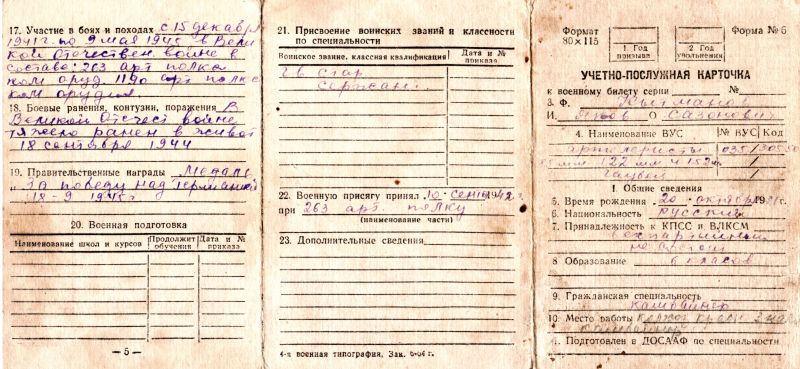 17. Участие в боях и походах с 15 декабря
1941 г. по 9 мая 1945 в Вели
кой Отечествен войне в
составе: 263 арт полка
ком оруд. 1190 арт полка
ком орудия.
18. Боевые ранения, контузии, поражения В
Великой Отечест войне
тяжело ранен в живот
18 сентября 1944
19. Правительственные награды Медаль
"За победу над Германией
18-9 1945 г
20. Военная подготовка
Наименование школ и курсов
Продолжит обучения
Дата и № приказа
— 5 —
21. Присвоение воинских званий и классности
по специальности
Воинское звание, классная квалификация
Дата и № приказа
Гв стар
сержант
22. Военную присягу принял 10 сент 1942 г
при 263 арт полку
(наименование части)
23. Дополнительные сведения
4-я военная типография, Зак. 6-64 г.
Формат
80×115
Форма № 6
1. Год призыва
2. Год увольнения
УЧЕТНО-ПОСЛУЖНАЯ КАРТОЧКА
к военному билету серии №
3. Ф.
И. Яков О Сазонович
4. Наименование ВУС № ВУС Код
артилеристы 035
мм 122 мм и 152 мм
гаубиц
I. Общие сведения
5. Время рождения 20 октября 19
6. Национальность Русский
7. Принадлежность к КПСС и ВЛКСМ
беспартийный
не состоит
8 Образование 6 класов
9. Гражданская специальность
комбайнер
10. Место работы
комбайнер
11. Подготовлен в ДОСААФ по специальности